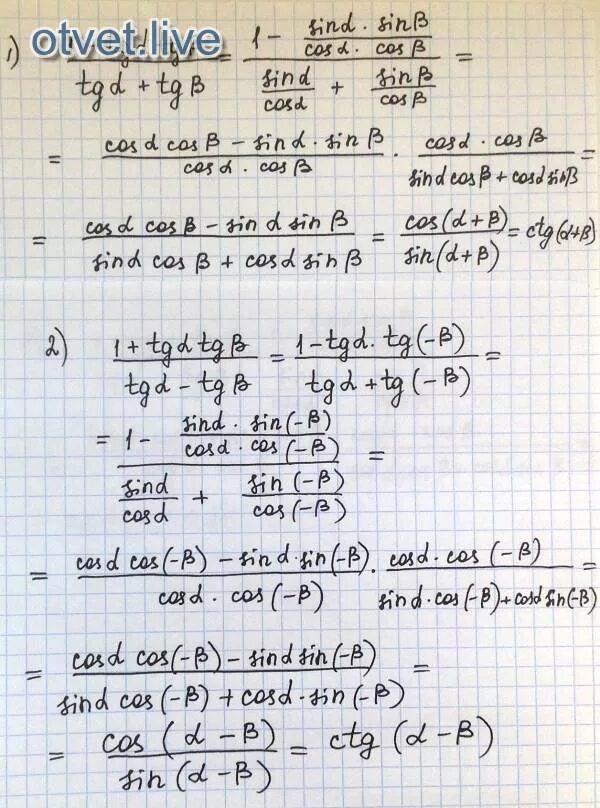 otvet.live
1) / (tg α + tg β) = (1 - (sin α · sin β)/(cos α · cos β)) / (sin α/cos α + sin β/cos β) =
= (cos α cos β - sin α · sin β)/(cos α · cos β) · (cos α · cos β)/(sin α cos β + cos α sin β) =
= (cos α cos β - sin α sin β)/(sin α cos β + cos α sin β) = cos(α+β)/sin(α+β) = ctg(α+β)
2) (1 + tg α tg β)/(tg α - tg β) = (1 - tg α · tg(-β))/(tg α + tg(-β)) =
= (1 - (sin α · sin(-β))/(cos α · cos(-β))) / (sin α/cos α + sin(-β)/cos(-β)) =
= (cos α cos(-β) - sin α · sin(-β))/(cos α · cos(-β)) · (cos α · cos(-β))/(sin α · cos(-β) + cos α sin(-β)) =
= (cos α cos(-β) - sin α sin(-β))/(sin α cos(-β) + cos α · sin(-β)) =
= cos(α - β)/sin(α - β) = ctg(α - β)